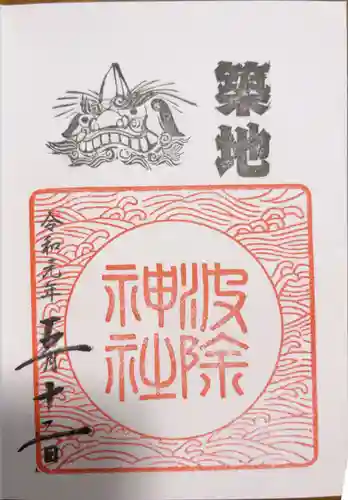 築地
波除
神社
令和元年
五月十二日